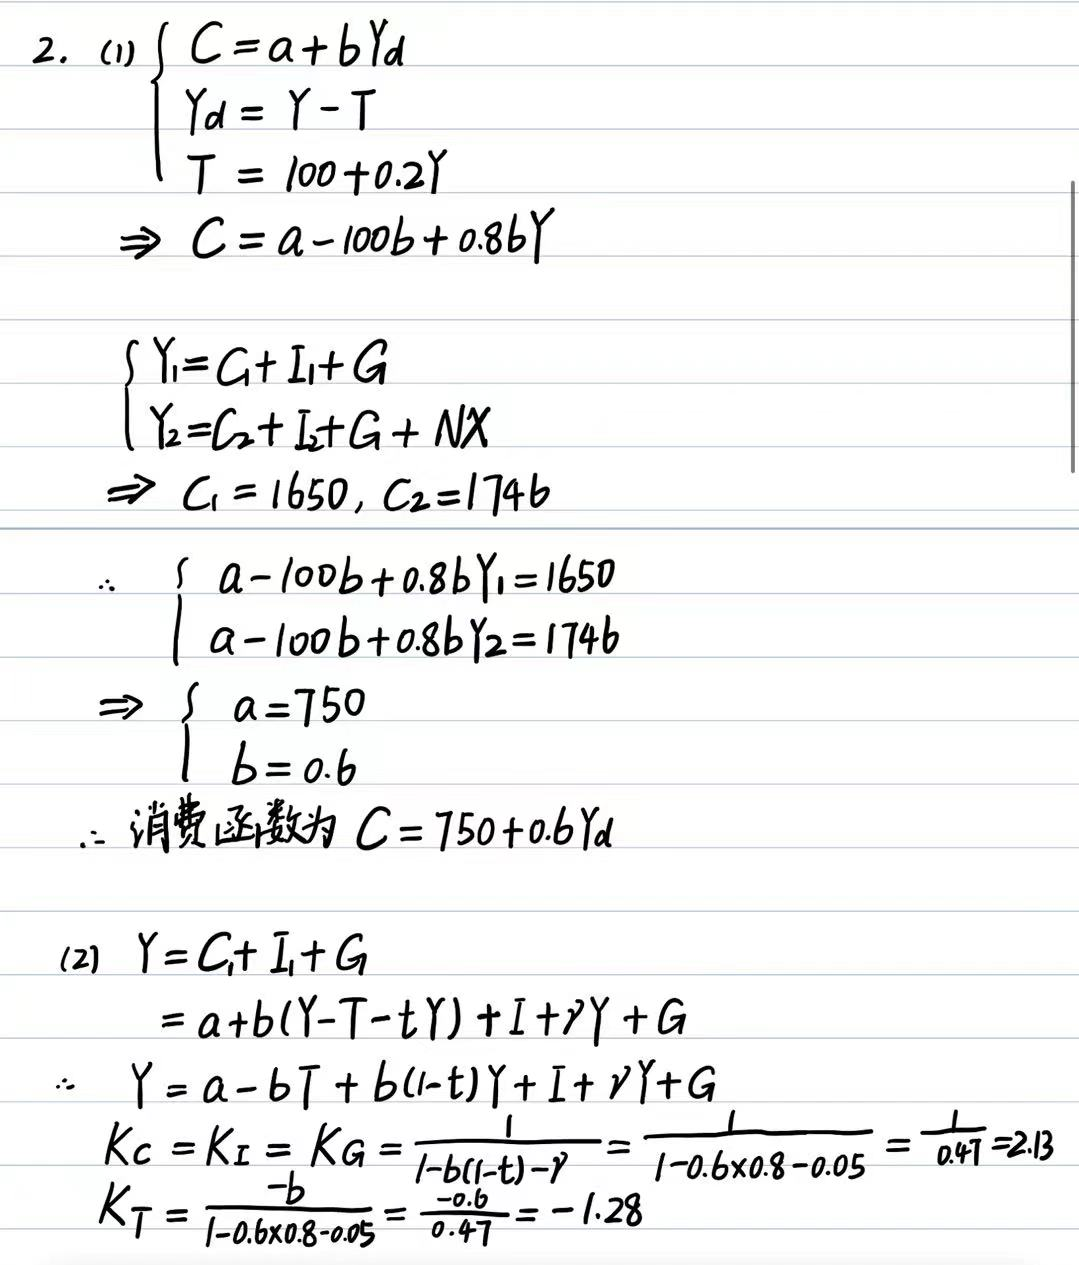 2. (1) { C = a + bYd
Yd = Y - T
T = 100 + 0.2Y
⇒ C = a - 100b + 0.8bY
{ Y₁ = C₁ + I₁ + G
Y₂ = C₂ + I₂ + G + NX
⇒ C₁ = 1650, C₂ = 1746
∴ { a - 100b + 0.8bY₁ = 1650
a - 100b + 0.8bY₂ = 1746
⇒ { a = 750
b = 0.6
∴ 消费函数为 C = 750 + 0.6Yd
(2) Y = C₁ + I₁ + G
= a + b(Y - T - tY) + I + γY + G
∴ Y = a - bT + b(1-t)Y + I + γY + G
Kc = K_I = K_G = 1/(1-b(1-t)-γ) = 1/(1-0.6×0.8-0.05) = 1/0.47 = 2.13
K_T = -b/(1-0.6×0.8-0.05) = -0.6/0.47 = -1.28